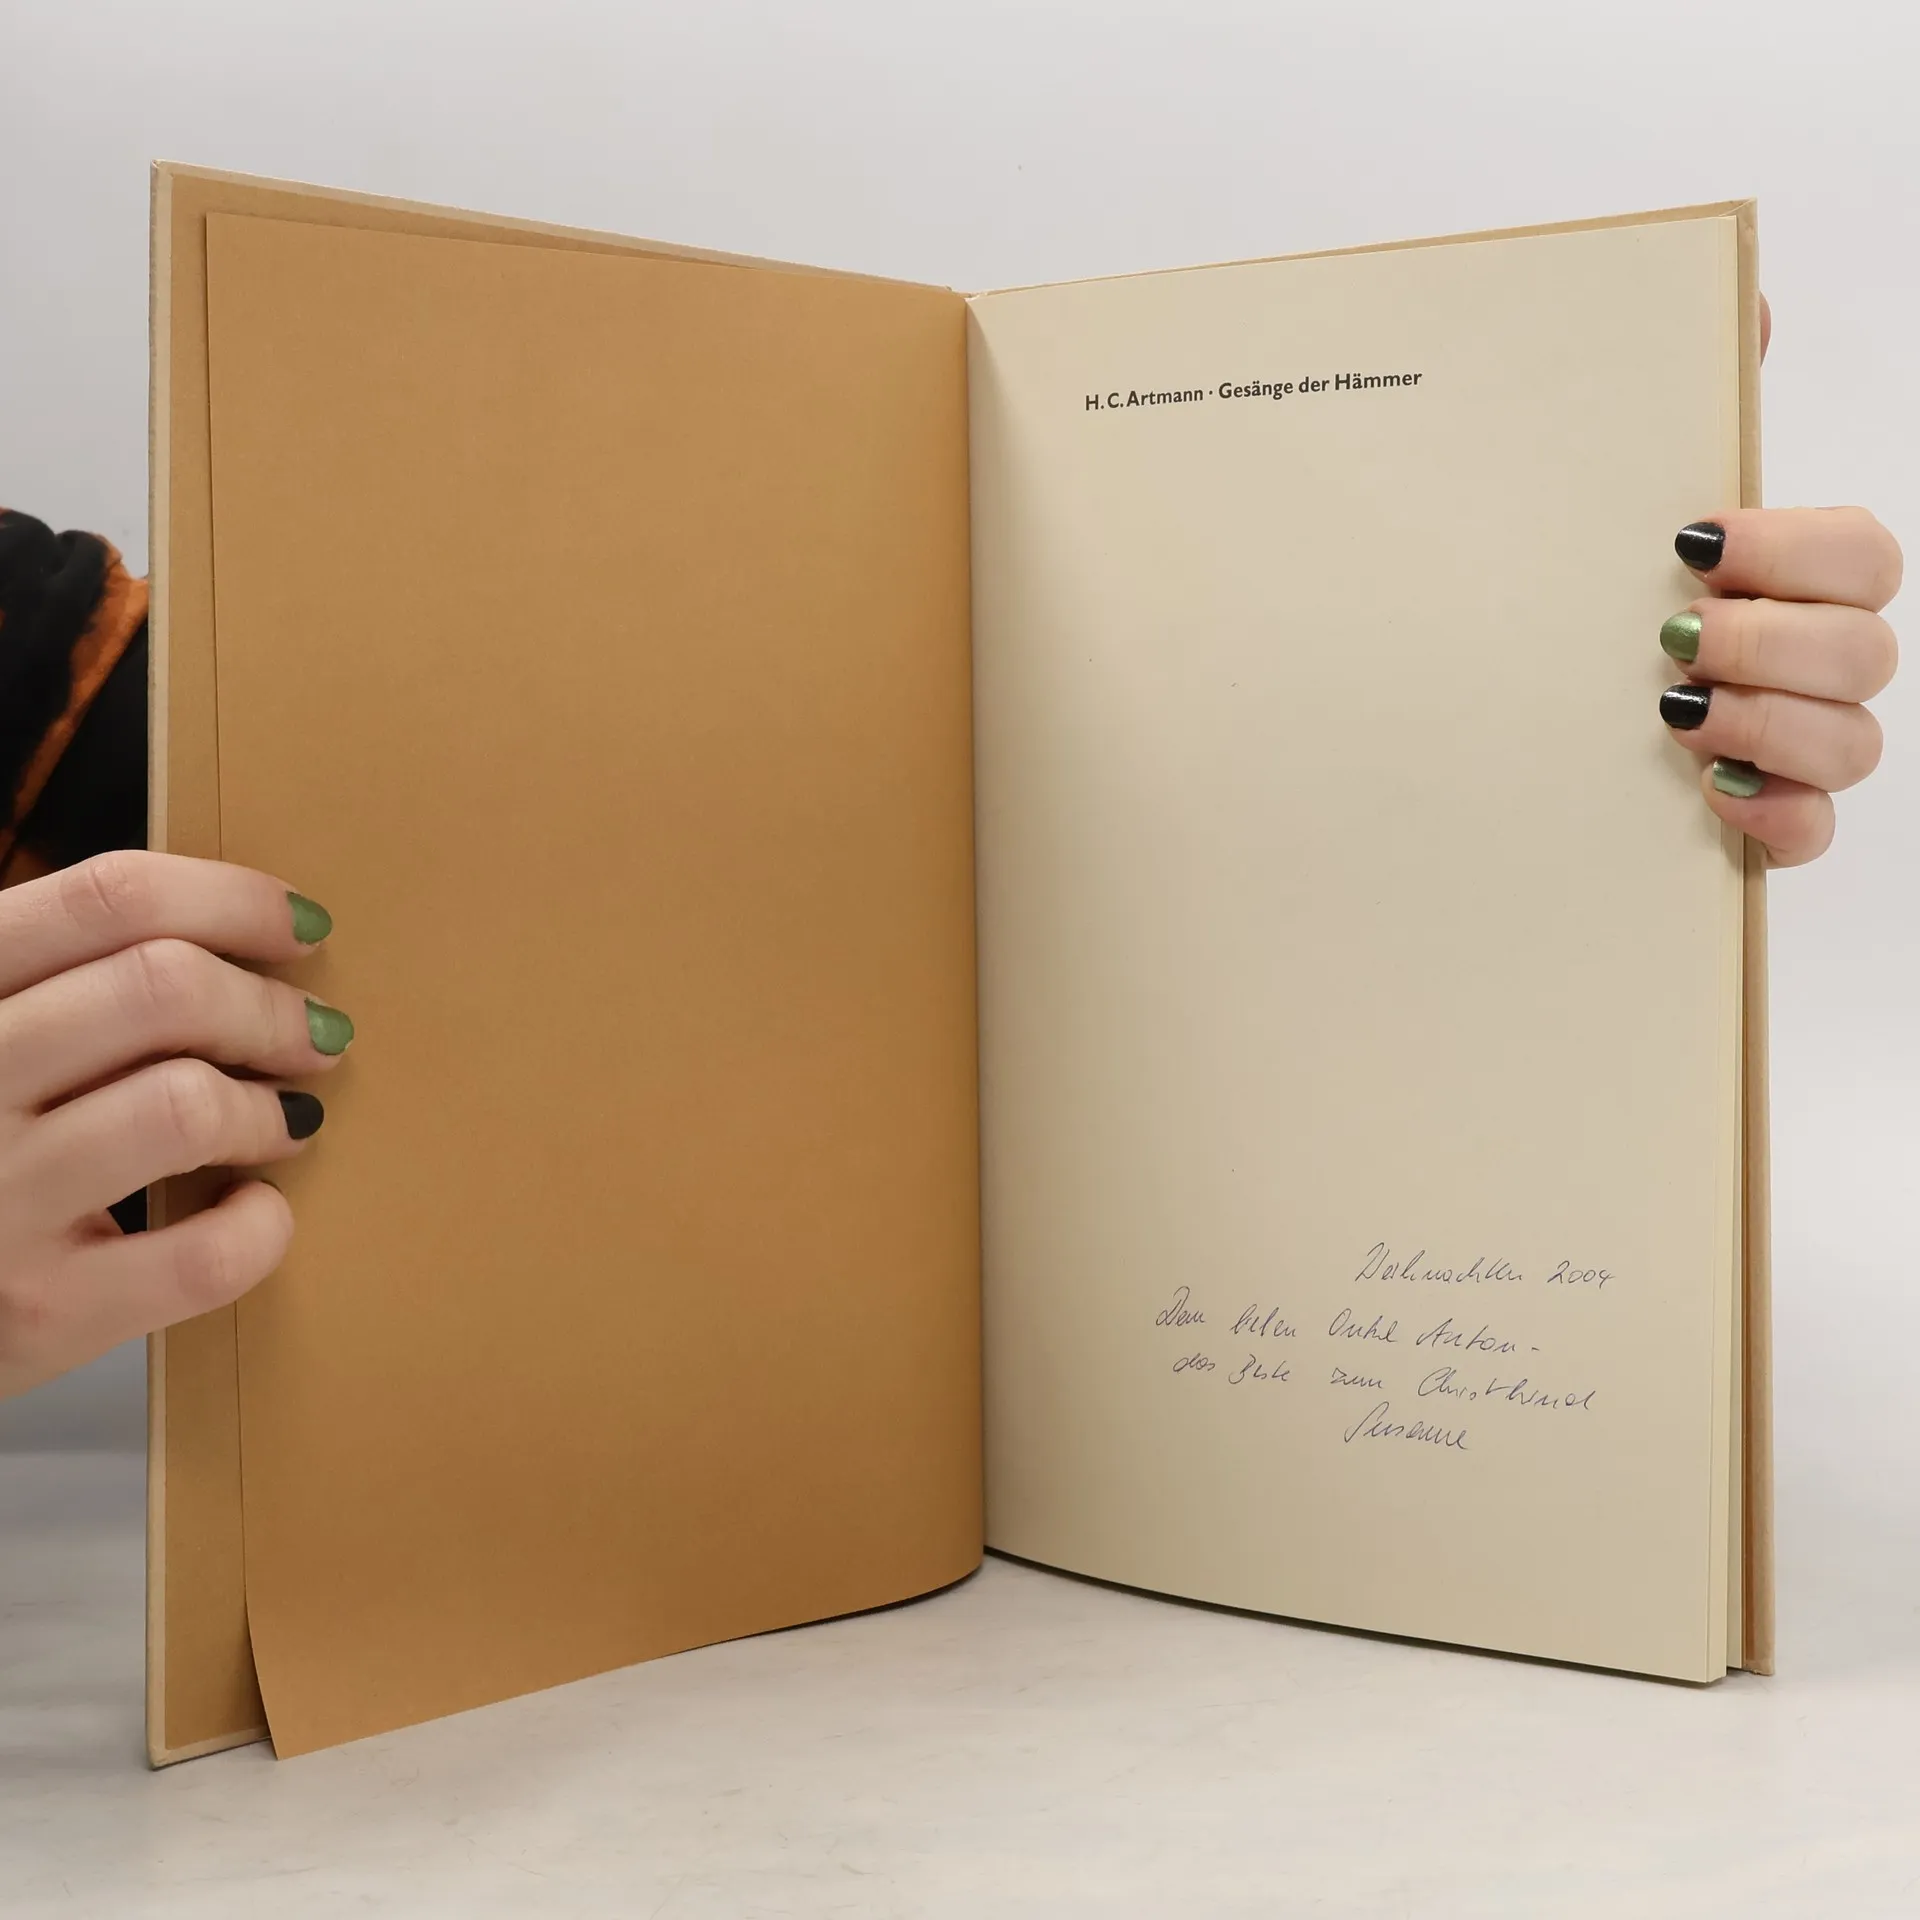 H. C. Artmann · Gesänge der Hämmer
Weihnachten 2004
Dem lieben Onkel Anton -
das Beste zum Christkind
Susanne